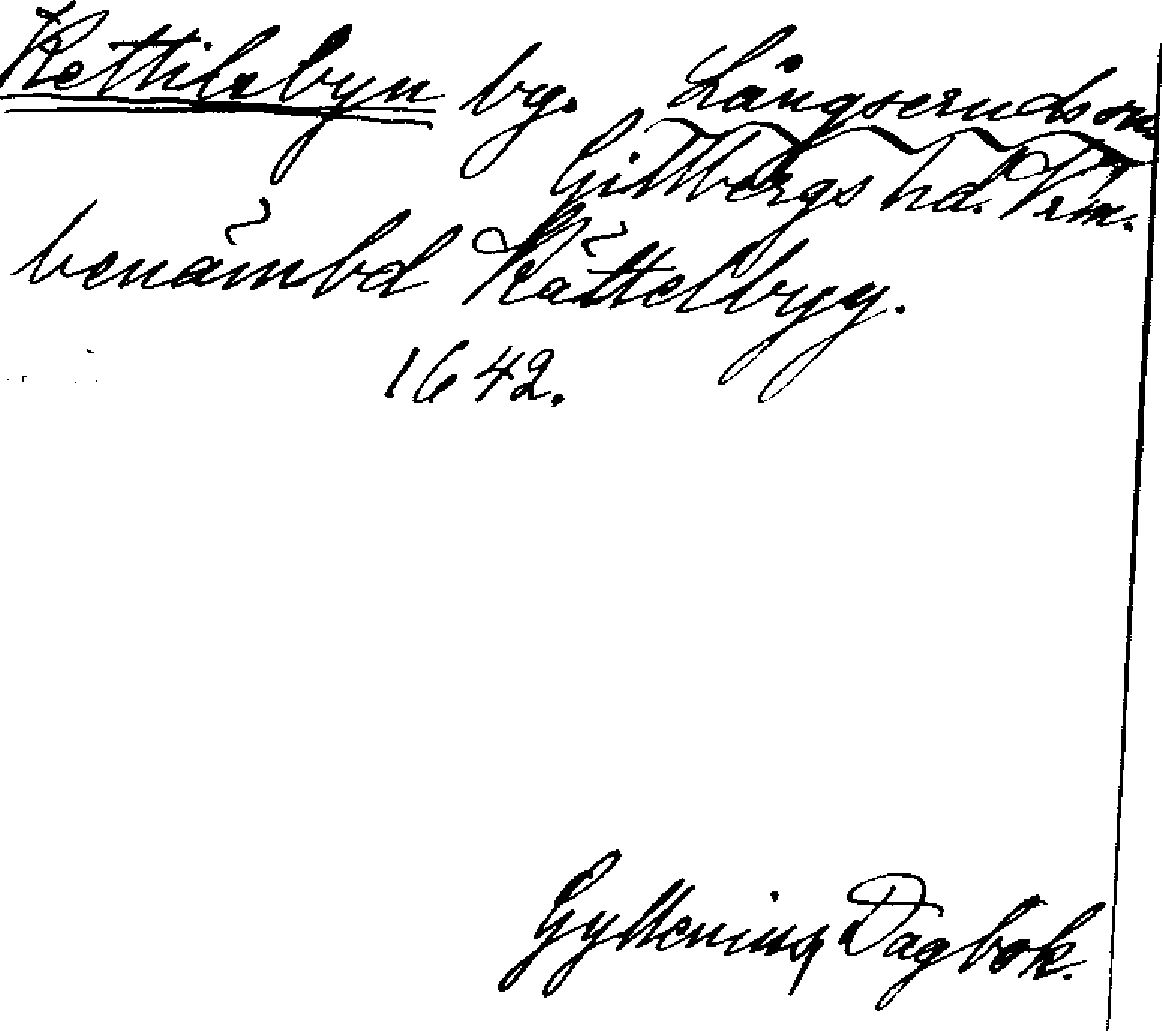 Kettilsbyn by. Långseruds sn
Gillbergs hd. Vrm.
benämbd Kättelbyy.
1642.
Gyllenius Dagbok.